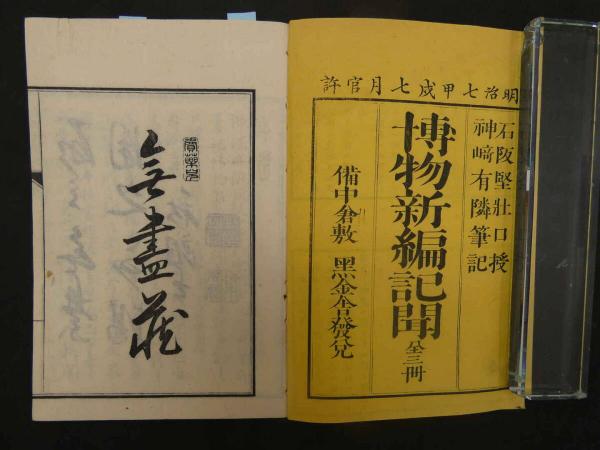 明治七甲戌七月官許
石阪堅壯口授
神﨑有隣筆記
博物新編記聞 全三冊
備中倉敷 黑金舎發兌
無盡藏